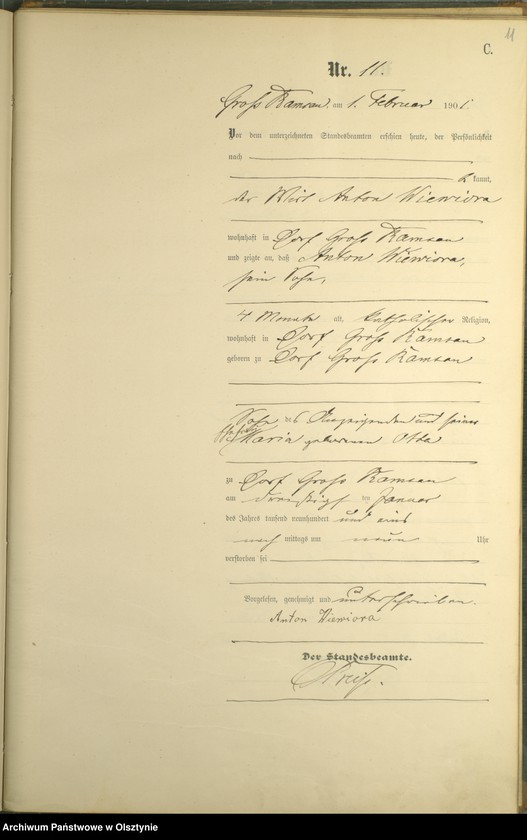 11
C.
Nr. 11.
Groß Ramsau am 1. Februar 1901.
Vor dem unterzeichneten Standesbeamten erschien heute, der Persönlichkeit
nach
kannt,
der Wirt Anton Wiewiora
wohnhaft in Dorf Groß Ramsau
und zeigte an, daß Anton Wiewiora,
sein Sohn,
4 Monate alt, katholischer Religion,
wohnhaft in Dorf Groß Ramsau
geboren zu Dorf Groß Ramsau
Sohn des Anzeigenden und seiner
Ehefrau Maria geborenen Otta
zu Dorf Groß Ramsau
am dreißigsten Januar
des Jahres tausend neunhundert und eins
nach mittags um neun Uhr
verstorben sei
Vorgelesen, genehmigt und unterschrieben.
Anton Wiewiora
Der Standesbeamte.
Archiwum Państwowe w Olsztynie